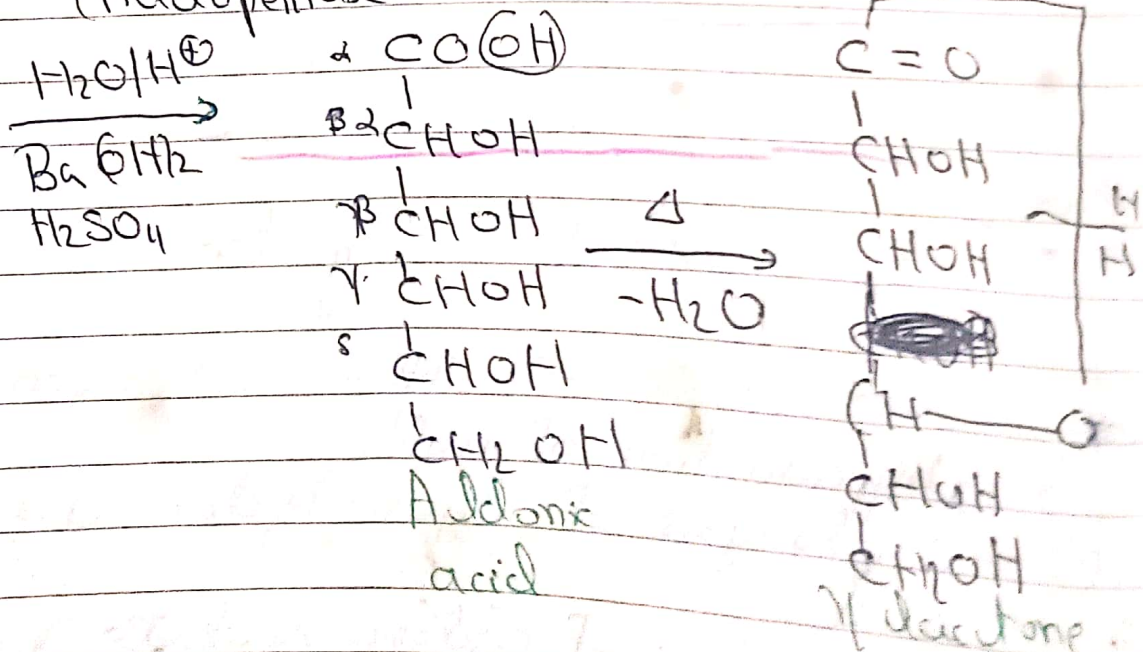 H2O/H⊕
Ba(OH)2
H2SO4
α COOH
β α CHOH
γ β CHOH
γ. CHOH
δ CHOH
CH2OH
Aldonic
acid
Δ
-H2O
C = O
CHOH
CHOH
CH—O
CHOH
CH2OH
γ lactone.
H
H